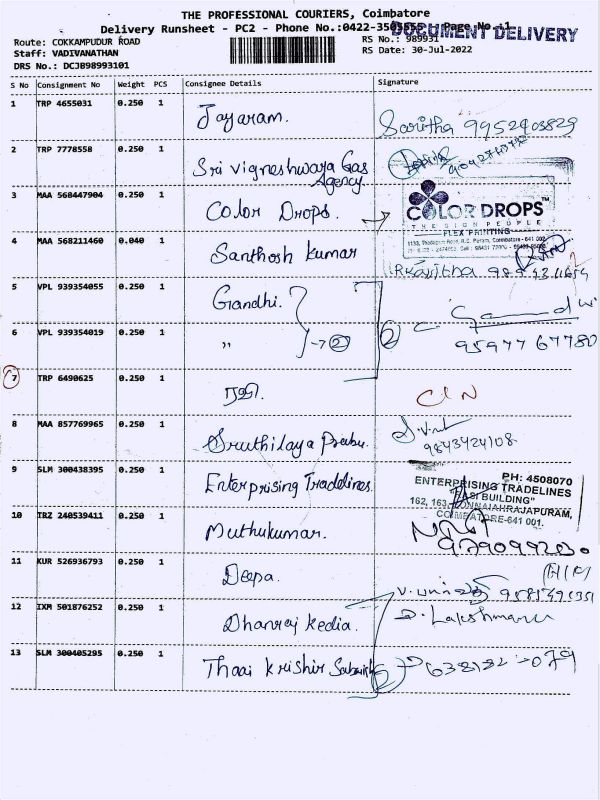 THE PROFESSIONAL COURIERS, Coimbatore
Delivery Runsheet - PC2 - Phone No.:0422-3505555 - Page No.:1
DOCUMENT DELIVERY
Route: COKKAMPUDUR ROAD
RS No.: 989931
Staff: VADIVANATHAN
RS Date: 30-Jul-2022
DRS No.: DCJB98993101
S No Consignment No Weight PCS Consignee Details Signature
1 TRP 4655031 0.250 1 Jayaram. Saritha 9952403829
2 TRP 7778558 0.250 1 Sri Vigneshwara Gas
Agency
3 MAA 568447904 0.250 1 Color Drops.
COLOR DROPS
THE SIGN PEOPLE
FLEX PRINTING
4 MAA 568211460 0.040 1 Santhosh Kumar
5 VPL 939354055 0.250 1 Gandhi. 2
6 VPL 939354019 0.250 1 " → 2 9597767780
7 TRP 6490625 0.250 1 ரவி. CIN
8 MAA 857769965 0.250 1 Sruthilaya Prabu. 9843424108
9 SLM 300438395 0.250 1 Enterprising Tradelines
PH: 4508070
ENTERPRISING TRADELINES
BUILDING"
COIMBATORE-641 001.
10 TRZ 240539411 0.250 1 Muthukumar.
11 KUR 526936793 0.250 1 Deepa.
12 IXM 501876252 0.250 1 Dhanraj Kedia. D. Lakshmanan
13 SLM 300405295 0.250 1 Thaai Krishir